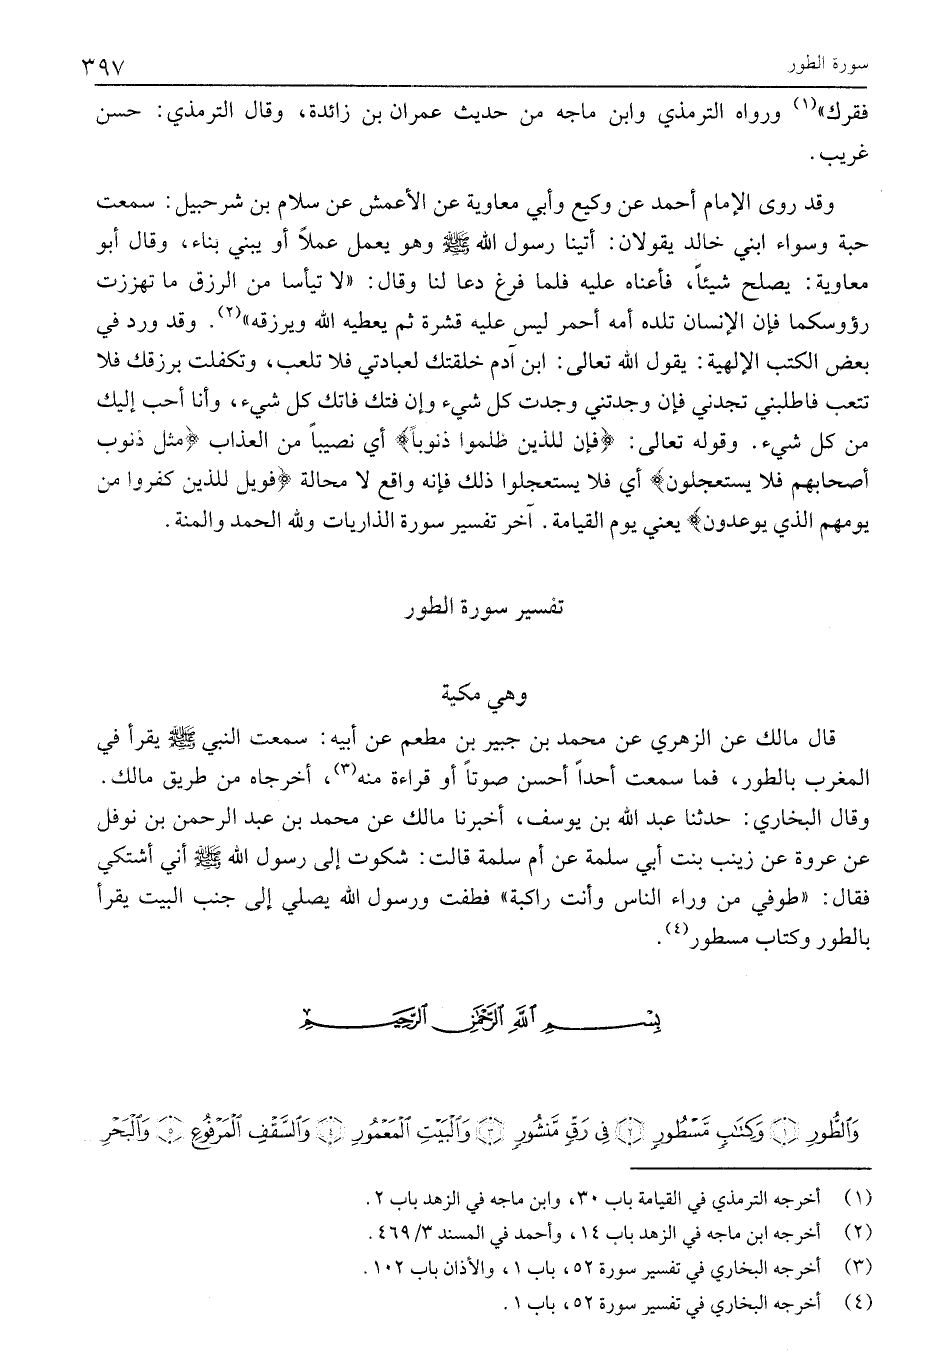 سورة الطور ٣٩٧
فقرك»(١) ورواه الترمذي وابن ماجه من حديث عمران بن زائدة، وقال الترمذي: حسن
غريب.
وقد روى الإمام أحمد عن وكيع وأبي معاوية عن الأعمش عن سلام بن شرحبيل: سمعت
حبة وسواء ابني خالد يقولان: أتينا رسول الله ﷺ وهو يعمل عملاً أو يبني بناء، وقال أبو
معاوية: يصلح شيئاً، فأعناه عليه فلما فرغ دعا لنا وقال: «لا تيأسا من الرزق ما تهززت
رؤوسكما فإن الإنسان تلده أمه أحمر ليس عليه قشرة ثم يعطيه الله ويرزقه»(٢). وقد ورد في
بعض الكتب الإلهية: يقول الله تعالى: ابن آدم خلقتك لعبادتي فلا تلعب، وتكفلت برزقك فلا
تتعب فاطلبني تجدني فإن وجدتني وجدت كل شيء وإن فتك فاتك كل شيء، وأنا أحب إليك
من كل شيء. وقوله تعالى: ﴿فإن للذين ظلموا ذنوباً﴾ أي نصيباً من العذاب ﴿مثل ذنوب
أصحابهم فلا يستعجلون﴾ أي فلا يستعجلوا ذلك فإنه واقع لا محالة ﴿فويل للذين كفروا من
يومهم الذي يوعدون﴾ يعني يوم القيامة. آخر تفسير سورة الذاريات ولله الحمد والمنة.
تفسير سورة الطور
وهي مكية
قال مالك عن الزهري عن محمد بن جبير بن مطعم عن أبيه: سمعت النبي ﷺ يقرأ في
المغرب بالطور، فما سمعت أحداً أحسن صوتاً أو قراءة منه(٣)، أخرجاه من طريق مالك.
وقال البخاري: حدثنا عبد الله بن يوسف، أخبرنا مالك عن محمد بن عبد الرحمن بن نوفل
عن عروة عن زينب بنت أبي سلمة عن أم سلمة قالت: شكوت إلى رسول الله ﷺ أني أشتكي
فقال: «طوفي من وراء الناس وأنت راكبة» فطفت ورسول الله يصلي إلى جنب البيت يقرأ
بالطور وكتاب مسطور(٤).
بِسْمِ ٱللَّهِ ٱلرَّحْمَٰنِ ٱلرَّحِيمِ
وَٱلطُّورِ ١ وَكِتَٰبٍ مَّسْطُورٍ ٢ فِي رَقٍّ مَّنشُورٍ ٣ وَٱلْبَيْتِ ٱلْمَعْمُورِ ٤ وَٱلسَّقْفِ ٱلْمَرْفُوعِ ٥ وَٱلْبَحْرِ
(١) أخرجه الترمذي في القيامة باب ٣٠، وابن ماجه في الزهد باب ٢.
(٢) أخرجه ابن ماجه في الزهد باب ١٤، وأحمد في المسند ٣/ ٤٦٩.
(٣) أخرجه البخاري في تفسير سورة ٥٢، باب ١، والأذان باب ١٠٢.
(٤) أخرجه البخاري في تفسير سورة ٥٢، باب ١.